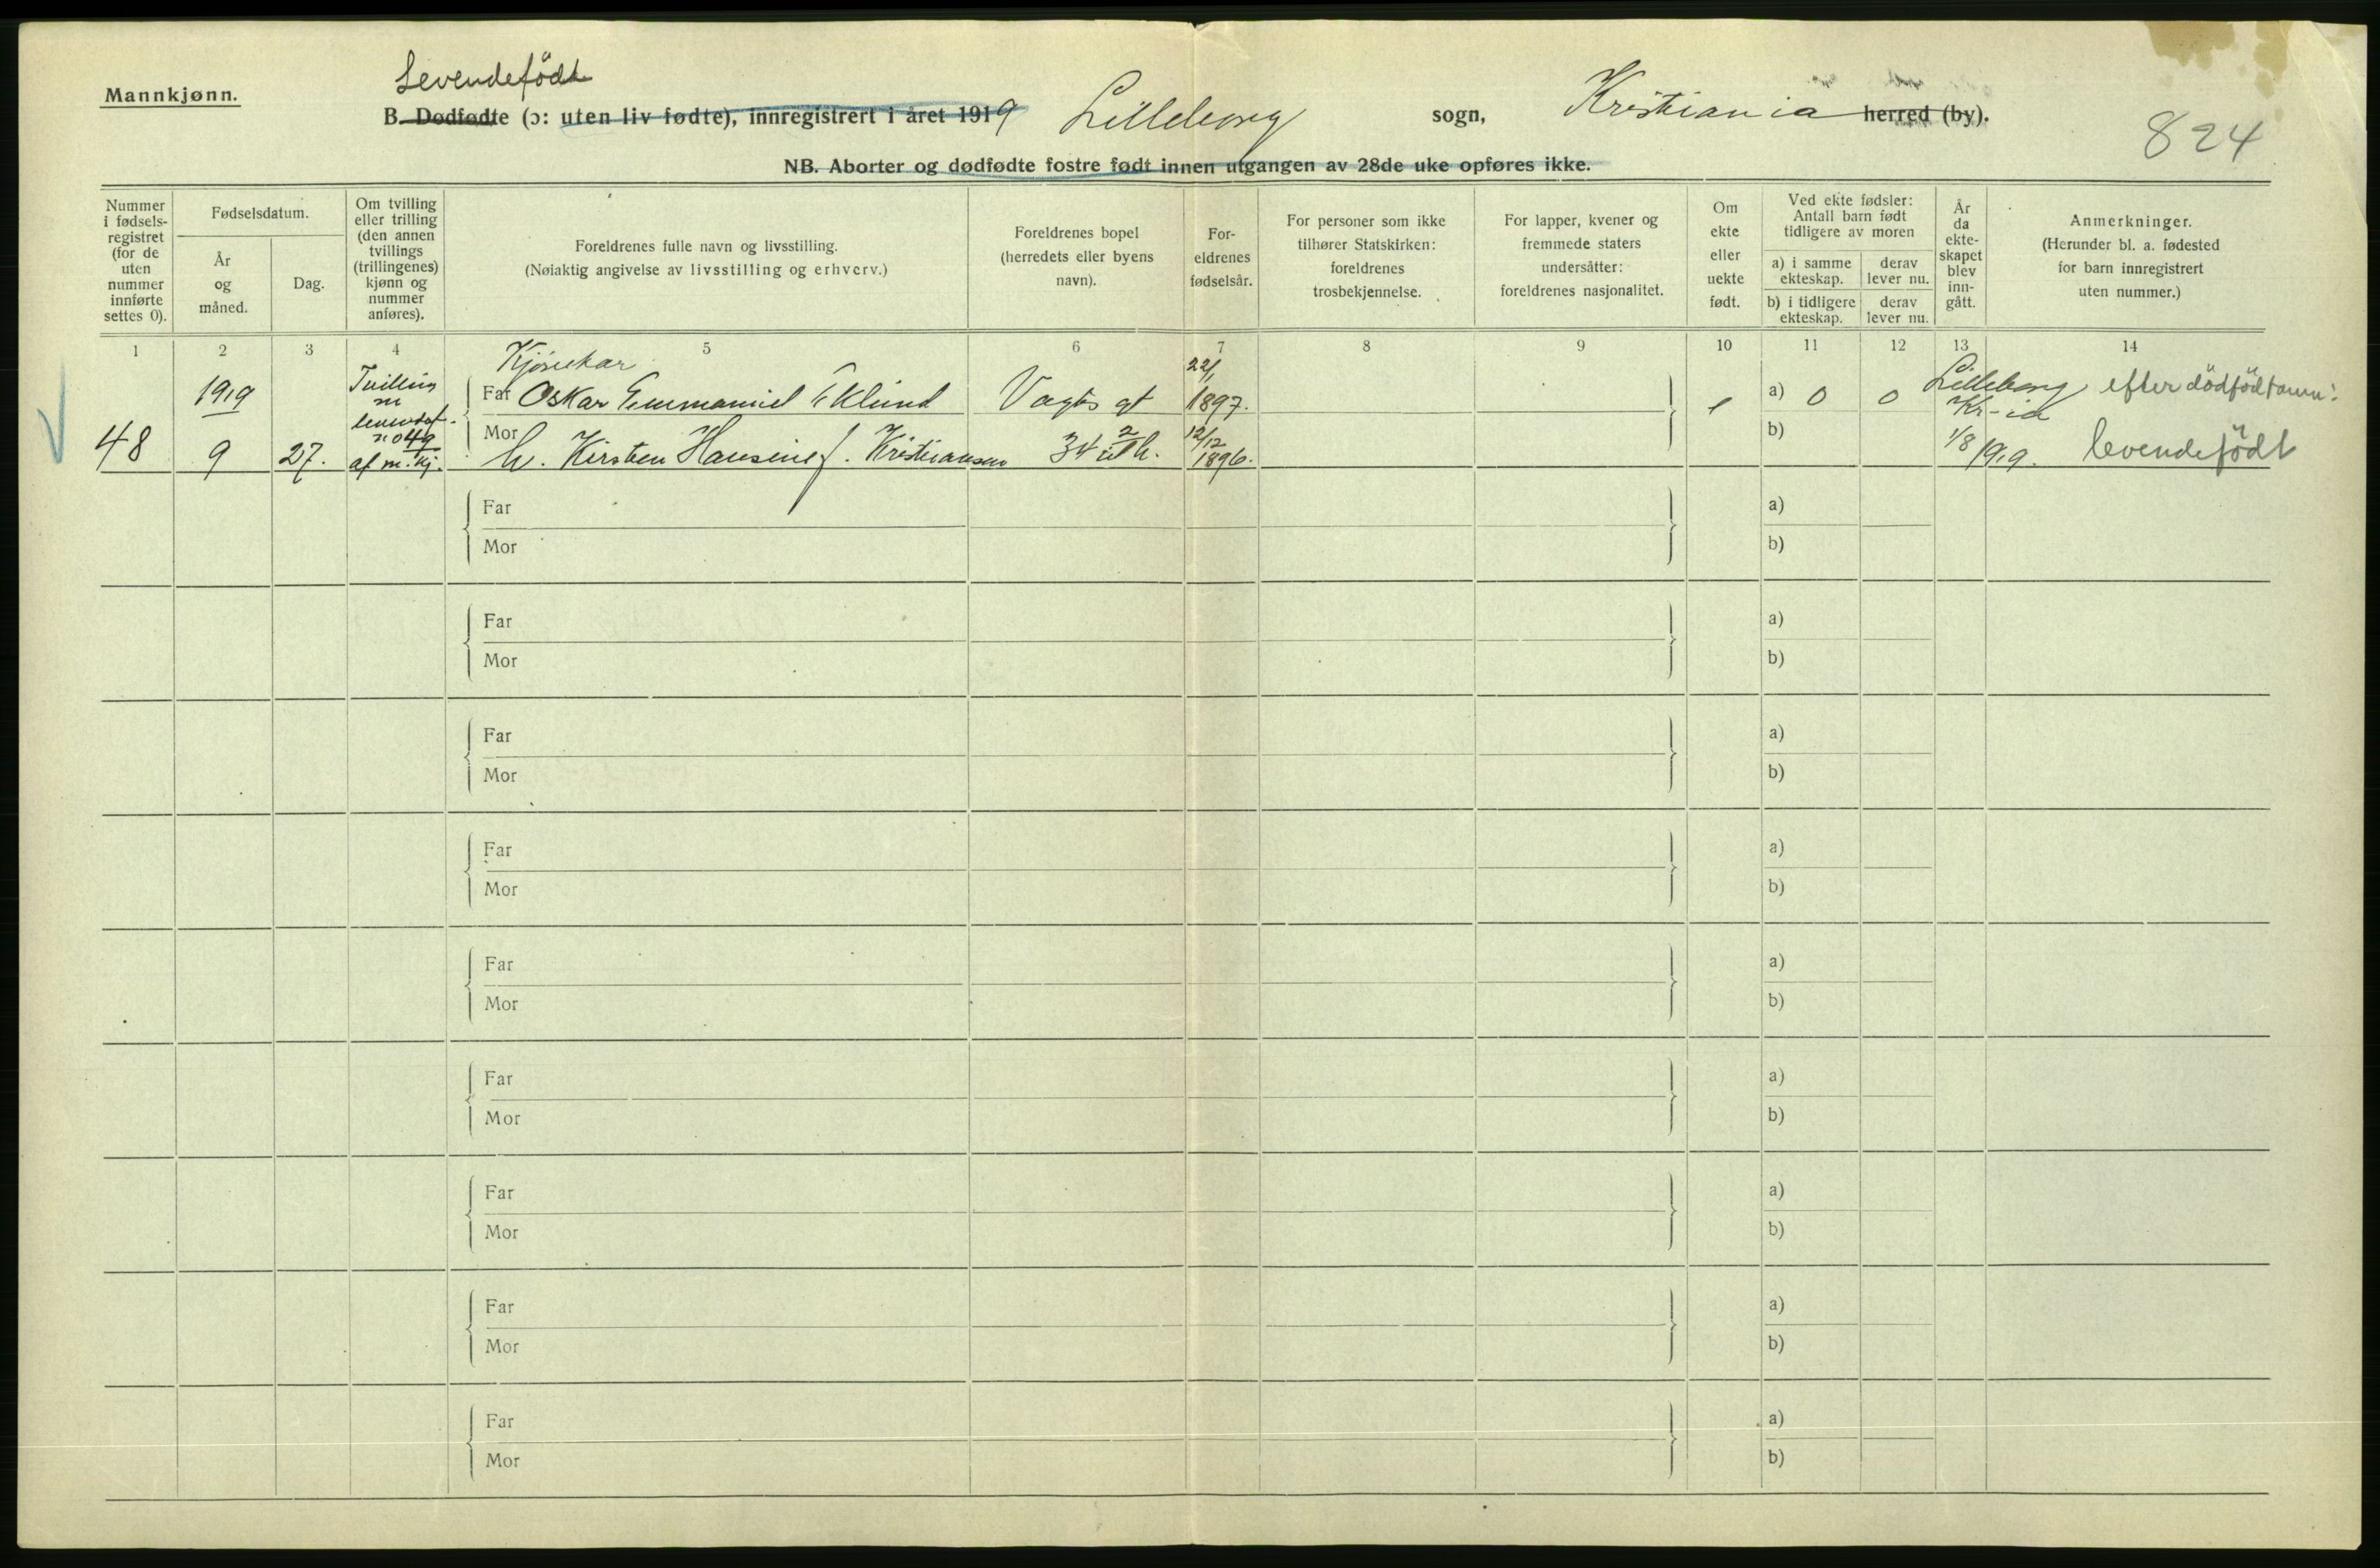 Mannkjønn.
Levendefödt
B. Dødfødte (ɔ: uten liv fødte), innregistrert i året 1919 Lilleborg sogn, Kristiania herred (by).
824
NB. Aborter og dødfødte fostre født innen utgangen av 28de uke opføres ikke.
Nummer i fødsels-registret (for de uten nummer innførte settes 0).
Fødselsdatum.
År og måned.
Dag.
Om tvilling eller trilling (den annen tvillings (trillingenes) kjønn og nummer anføres).
Foreldrenes fulle navn og livsstilling.
(Nøiaktig angivelse av livsstilling og erhverv.)
Foreldrenes bopel (herredets eller byens navn).
For-eldrenes fødselsår.
For personer som ikke tilhører Statskirken: foreldrenes trosbekjennelse.
For lapper, kvener og fremmede staters undersåtter: foreldrenes nasjonalitet.
Om ekte eller uekte født.
Ved ekte fødsler: Antall barn født tidligere av moren
a) i samme ekteskap.
derav lever nu.
b) i tidligere ekteskap.
derav lever nu.
År da ekte-skapet blev inn-gått.
Anmerkninger.
(Herunder bl. a. fødested for barn innregistrert uten nummer.)
1 2 3 4 5 6 7 8 9 10 11 12 13 14
48
1919
9
27.
Tvilling
no 49
af m. kj.
Kjørekar
Far Oskar Emmanuel Eklund
Mor h. Kirsten Hansine f. Kristiansen
Vogts gt
34
22/1
1897.
12/12
1896.
e
a) 0 0
b)
Lilleborg
Kr-ia
1/8 1919.
efter dödfödtanm:
levendefödt
Far
Mor
a)
b)
Far
Mor
a)
b)
Far
Mor
a)
b)
Far
Mor
a)
b)
Far
Mor
a)
b)
Far
Mor
a)
b)
Far
Mor
a)
b)
Far
Mor
a)
b)
Far
Mor
a)
b)